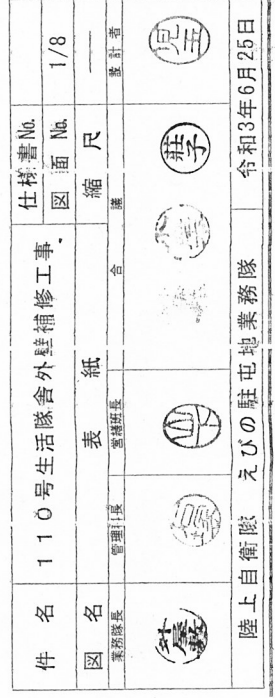 件 名 110号生活隊舎外壁補修工事 仕様書No.
図 名 表 紙 図面 No. 1/8
縮 尺 ―
業務隊長 管理 長 営繕班長 合 議 設計者
山下 莊子 児玉
陸上自衛隊 えびの駐屯地業務隊 令和3年6月25日